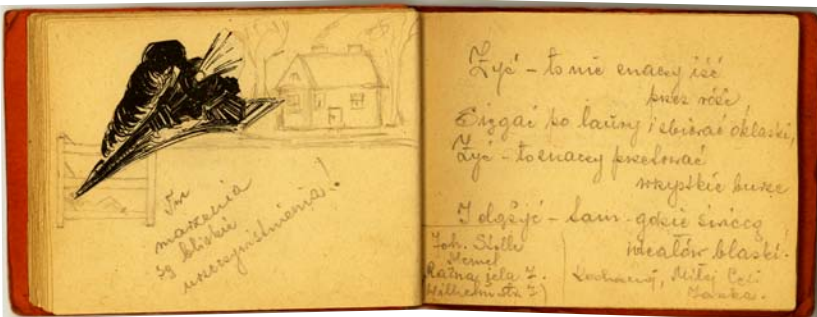 Tu
marzenia
są bliskie
urzeczywistnienia!
Żyć – to nie znaczy iść
przez róże,
Sięgać po laury i zbierać oklaski,
Żyć – to znaczy przetrwać
wszystkie burze
I dążyć – tam gdzie świecą
ideałów blaski.
Joh. Stelle
Memel
Kochanej, Miłej
Janka.